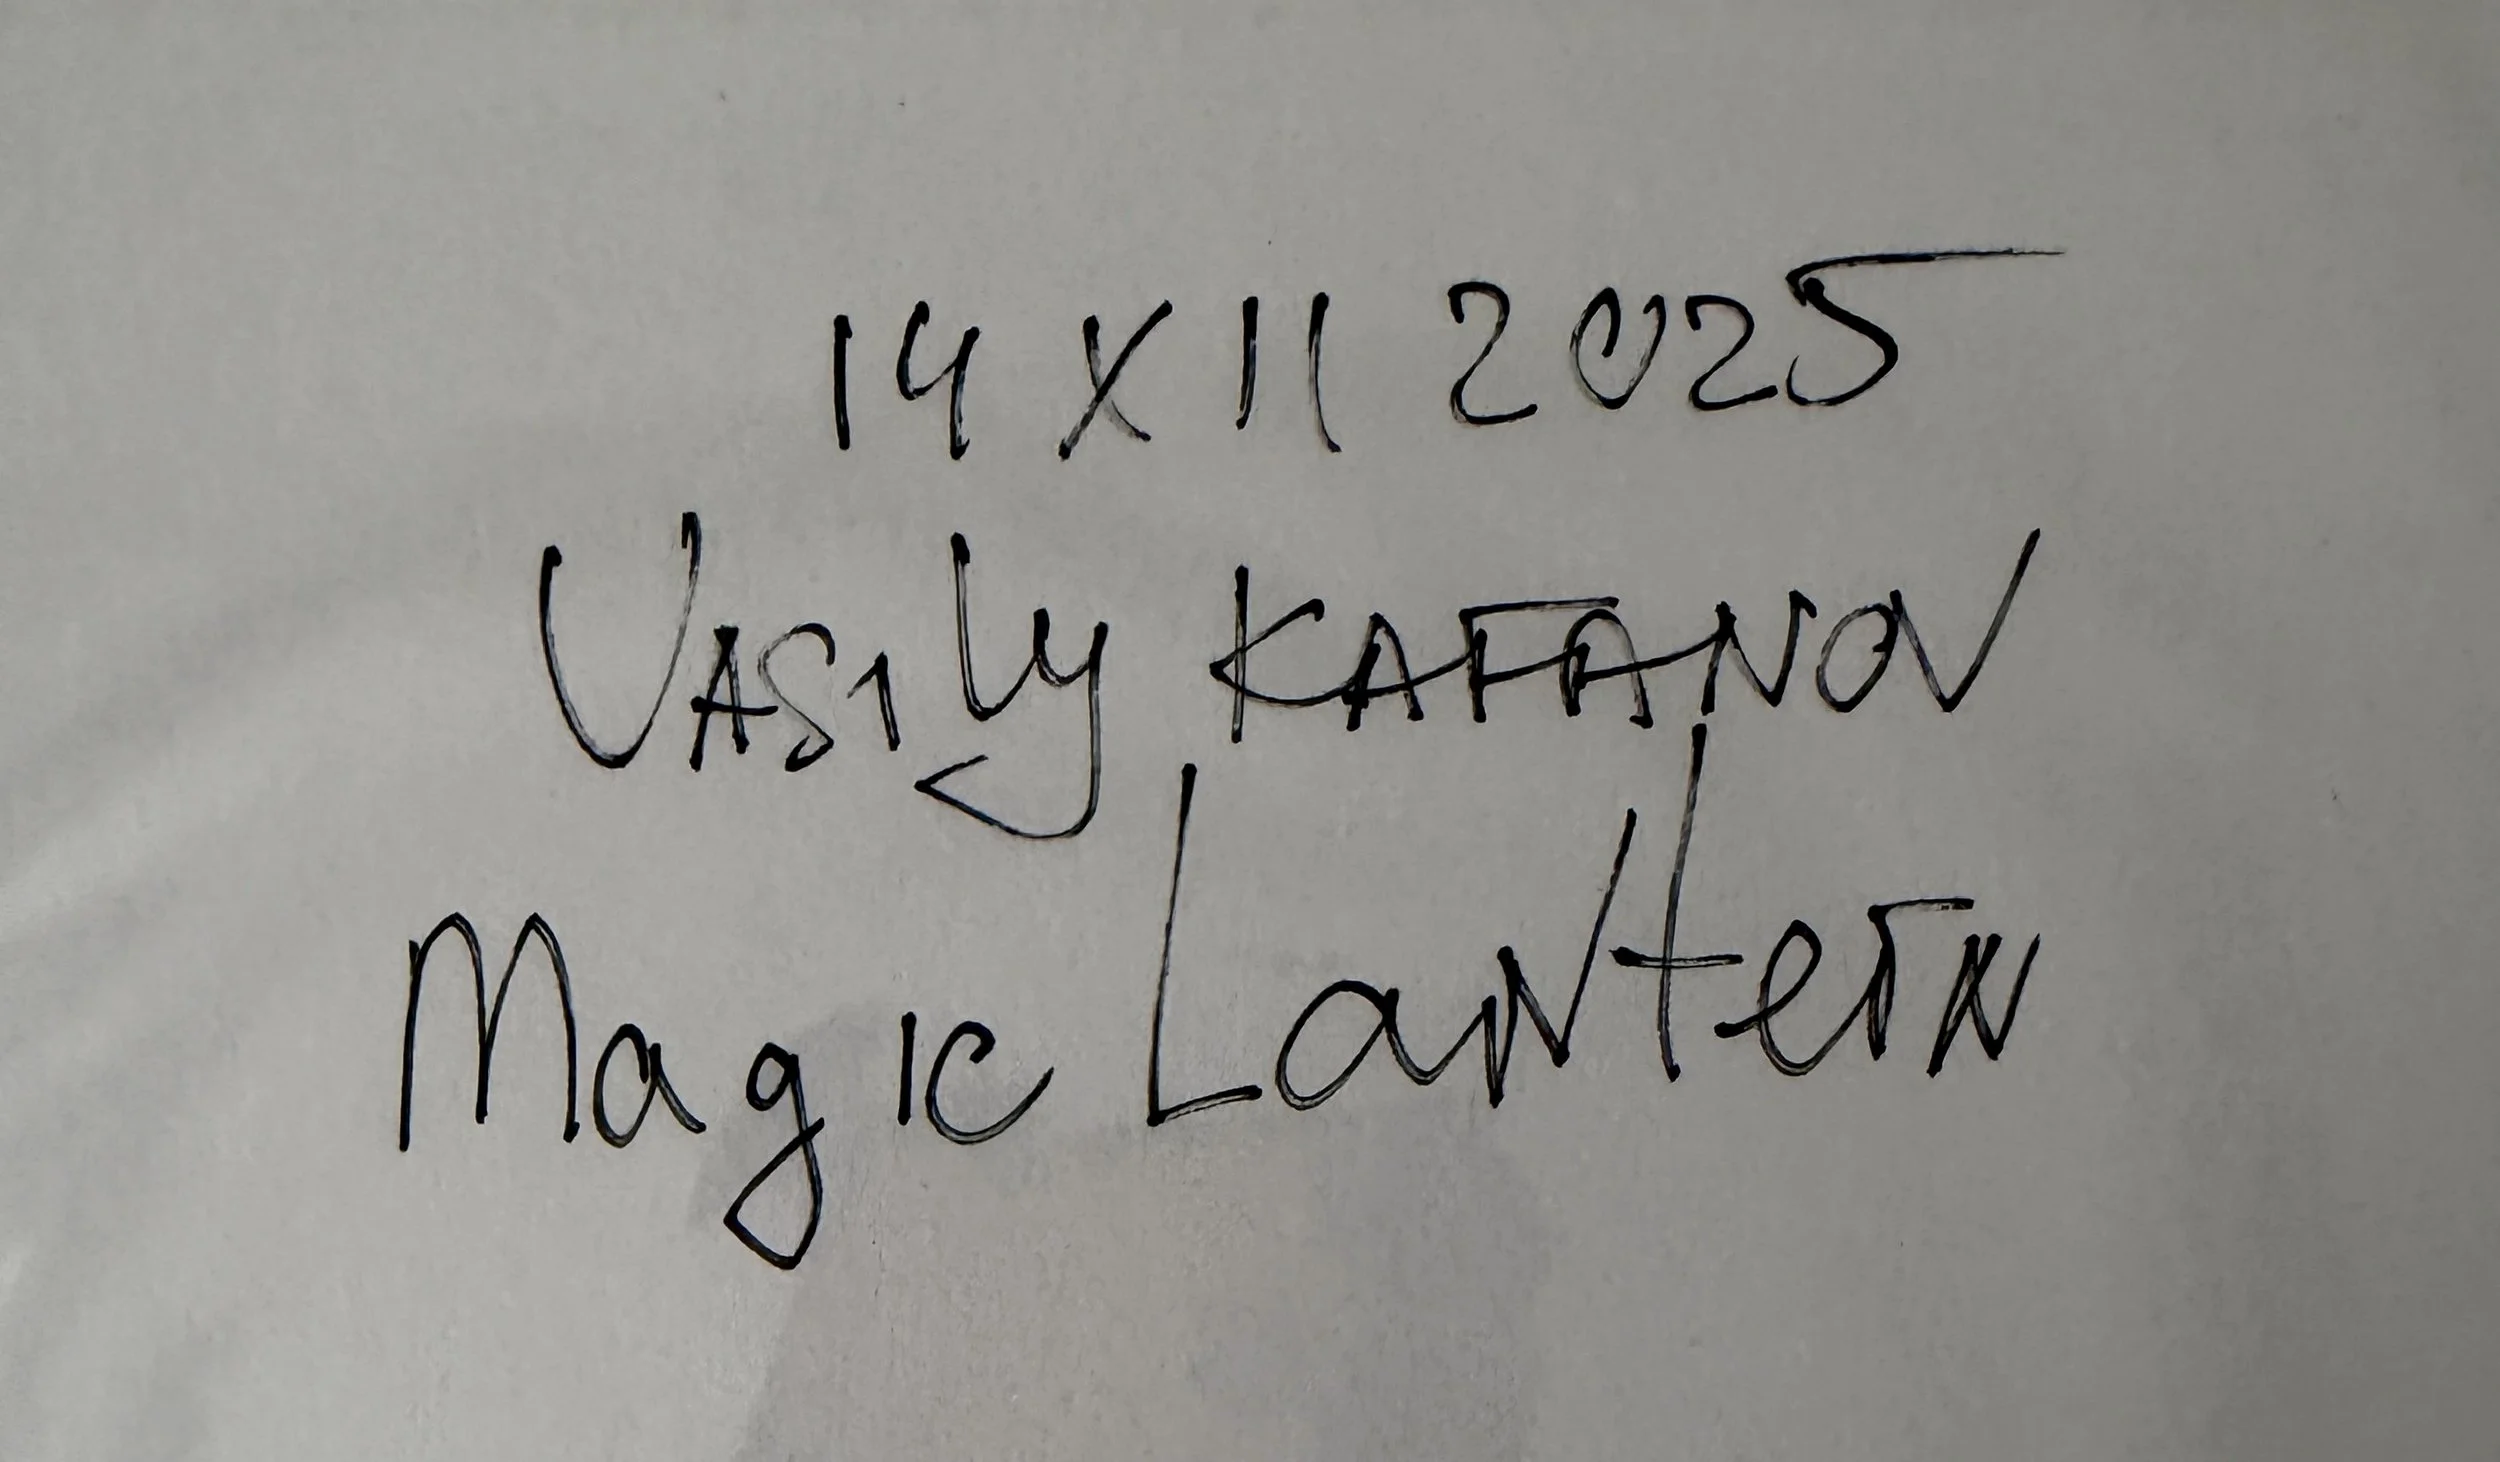 14 XII 2025
VASILY KAFANOV
Magic Lantern